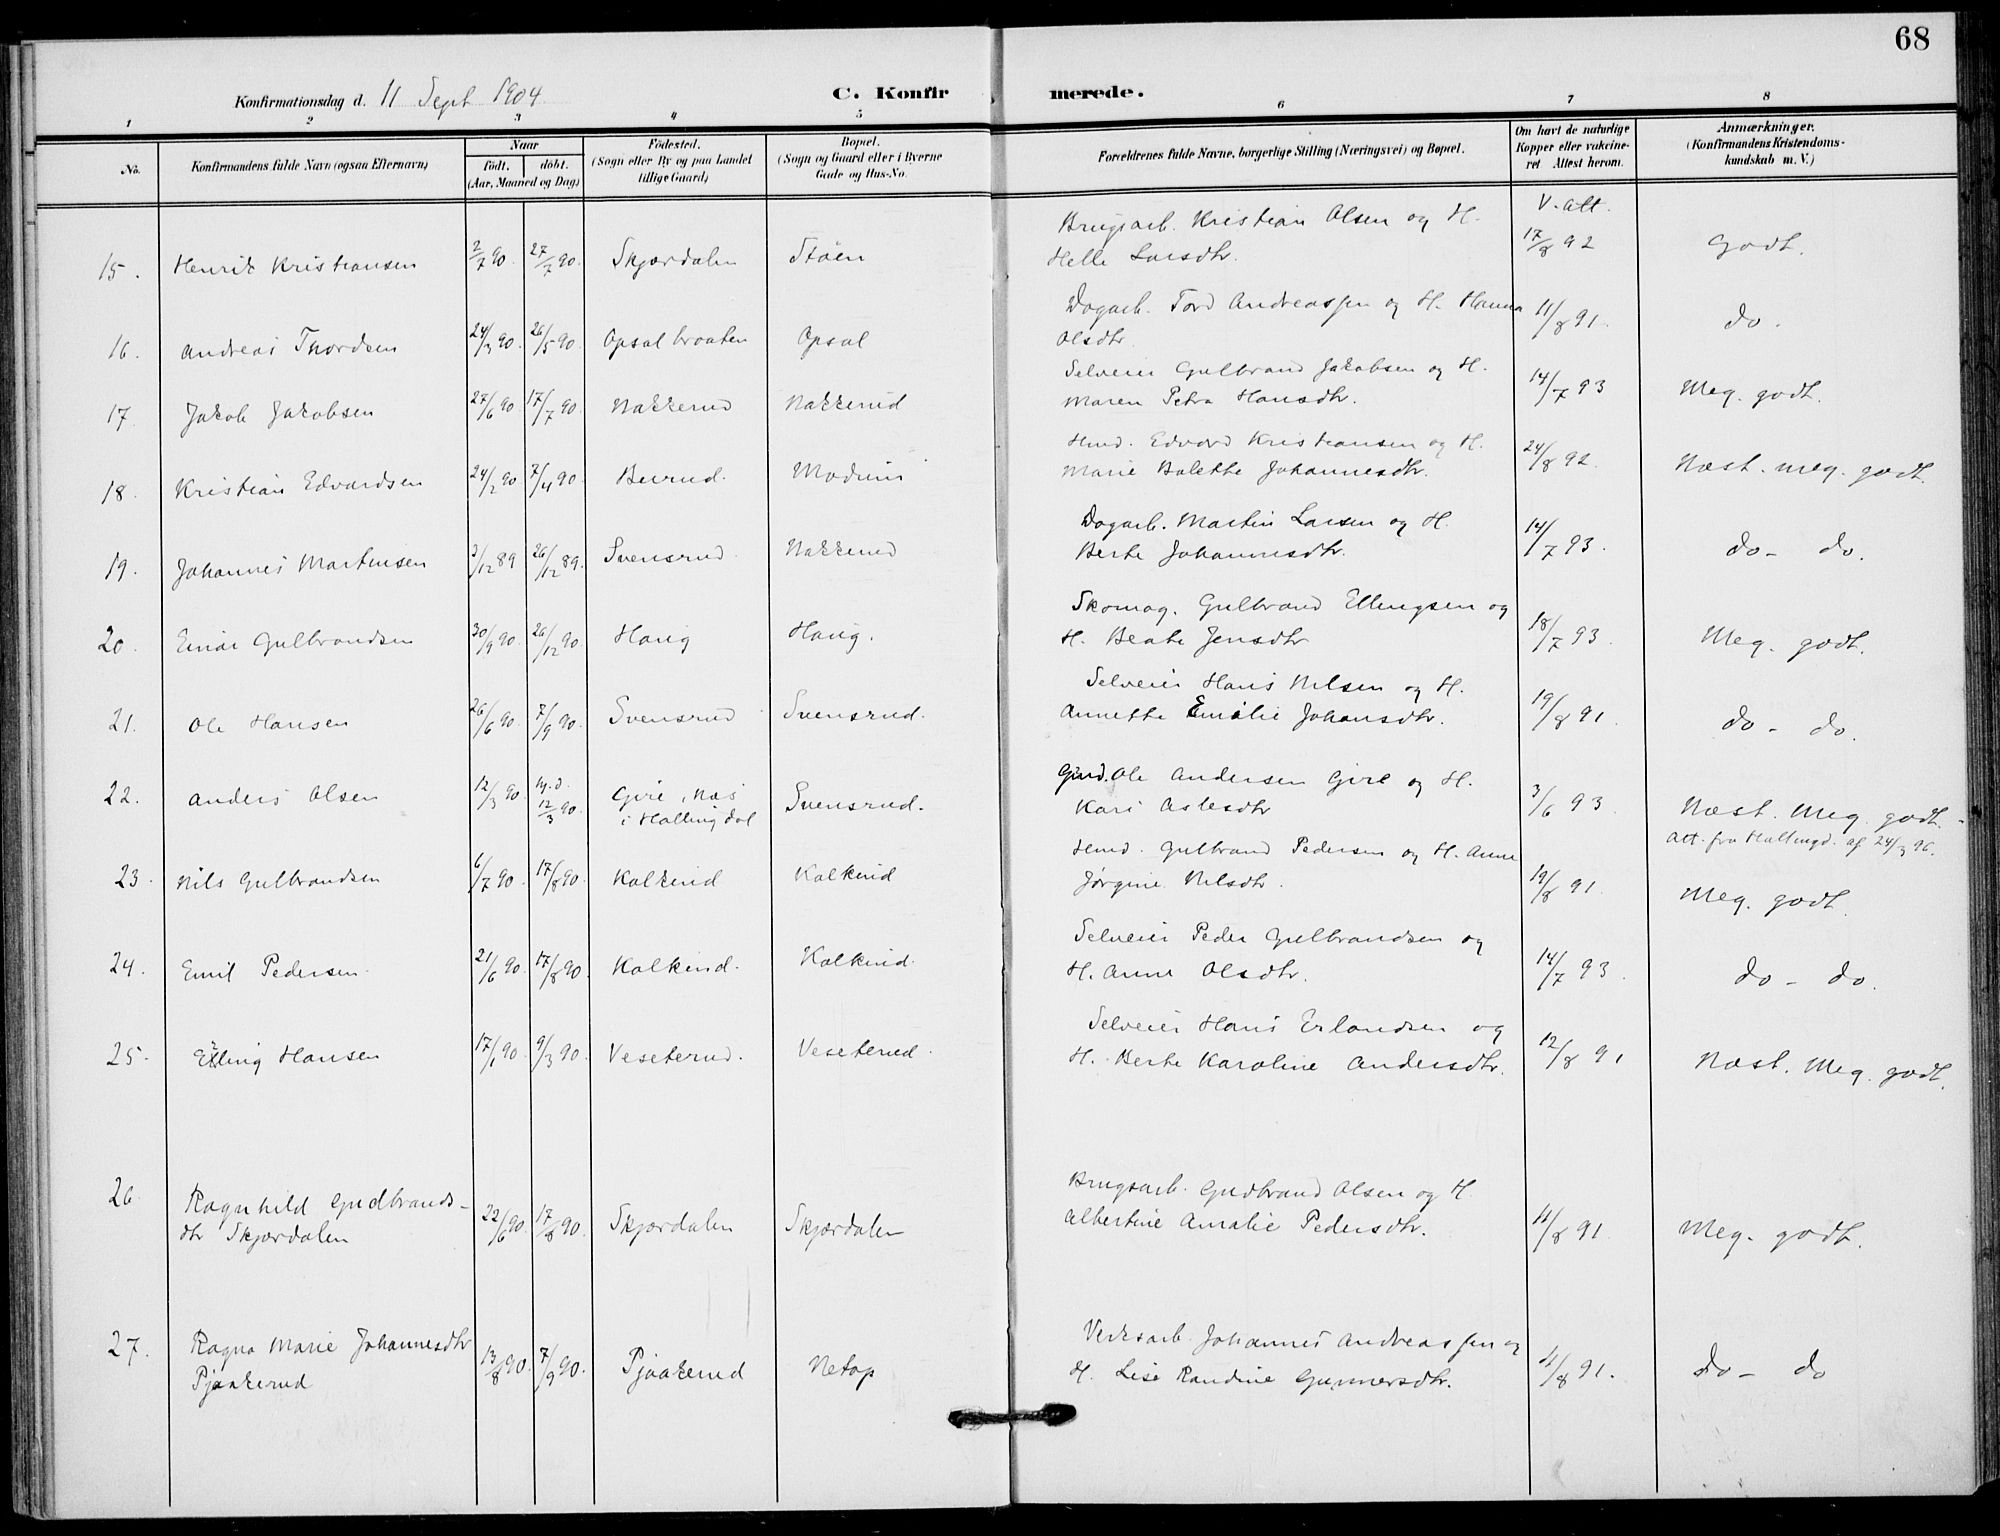 68
Konfirmationsdag d. 11 Sept 1904
C. Konfirmerede.
1 2 3 4 5 6 7 8
No.
Konfirmandens fulde Navn (ogsaa Efternavn)
Naar
født. døbt.
(Aar, Maaned og Dag)
Fødested.
(Sogn eller By og paa Landet
tillige Gaard)
Bopæl.
(Sogn og Gaard eller i Byerne
Gade og Hus-No.
Forældrenes fulde Navne, borgerlige Stilling (Næringsvei) og Bopæl.
Om havt de naturlige
Kopper eller vakcine-
ret Attest herom.
Anmærkninger.
(Konfirmandens Kristendoms-
kundskab m. V.)
15. Henrik Kristiansen 2/7 90. 27/7 90. Skjærdalen Støen Brugsarb. Kristian Olsen og H. V. Att.
Helle Larsdtr. 17/8 92 Godt.
16. Andreas Thordsen 24/3 90. 26/5 90. Opsalbraaten Opsal Dagarb. Tord Andreassen og H. Hanna 11/8 91. do.
Olsdtr.
17. Jakob Jakobsen 27/6 90. 17/7 90. Nakkerud Nakkerud Selveier Gulbrand Jakobsen og H. 14/7 93 Meg. godt.
Maren Petra Hansdtr.
18. Kristian Edvardsen 24/2 90 7/4 90. Burud. Modum Hmd. Edvard Kristiansen og H. 24/8 92. Næst. meg. godt.
Marie Bolette Johannesdtr.
19. Johannes Martinsen 3/12 89 26/12 89. Svensrud. Nakkerud Dagarb. Martin Larsen og H. 14/7 93. do - do.
Berte Johannesdtr.
20. Einar Gulbrandsen 30/9 90. 26/12 90. Haug Haug. Skomag. Gulbrand Ellingsen og 18/7 93. Meg. godt.
H. Beate Jensdtr
21. Ole Hansen 26/6 90. 7/9 90. Svensrud Svensrud. Selveier Hans Nilsen og H. 19/8 91. do - do.
Annette Emilie Johansdtr.
22. Anders Olsen 12/3 90. hj.d. 12/3 90. Gire, Næs
i Hallingdal Svensrud. Gmd. Ole Andersen Gire og H. 3/6 93 Næst. Meg. godt.
Kari Aslesdtr Att. fra Hallingd. af 24/3 96.
23. Nils Gulbrandsen 6/7 90. 17/8 90. Kalkerud Kalkerud Hmd. Gulbrand Pedersen og H. Anne 19/8 91. Meg. godt.
Jørgine Nilsdtr.
24. Emil Pedersen 21/6 90. 17/8 90. Kalkerud. Kalkerud. Selveier Peder Gulbrandsen og 14/7 93. do - do.
H. Anne Olsdtr.
25. Elling Hansen 17/1 90. 9/3 90. Veseterud. Veseterud. Selveier Hans Erlandsen og 12/8 91 Næst. Meg. godt.
H. Berte Karoline Andersdtr.
26. Ragnhild Gudbrands-
dtr Skjærdalen 22/6 90. 17/8 90. Skjærdalen Skjærdalen Brugsarb. Gudbrand Olsen og H. 11/8 91. Meg. godt.
Albertine Amalie Pedersdtr.
27. Ragna Marie Johannesdtr
Pjaakerud 13/8 90. 7/9 90. Pjaakerud Netop Verksarb. Johannes Andreassen og 11/8 91. do - do
H. Lise Randine Gunnersdtr.